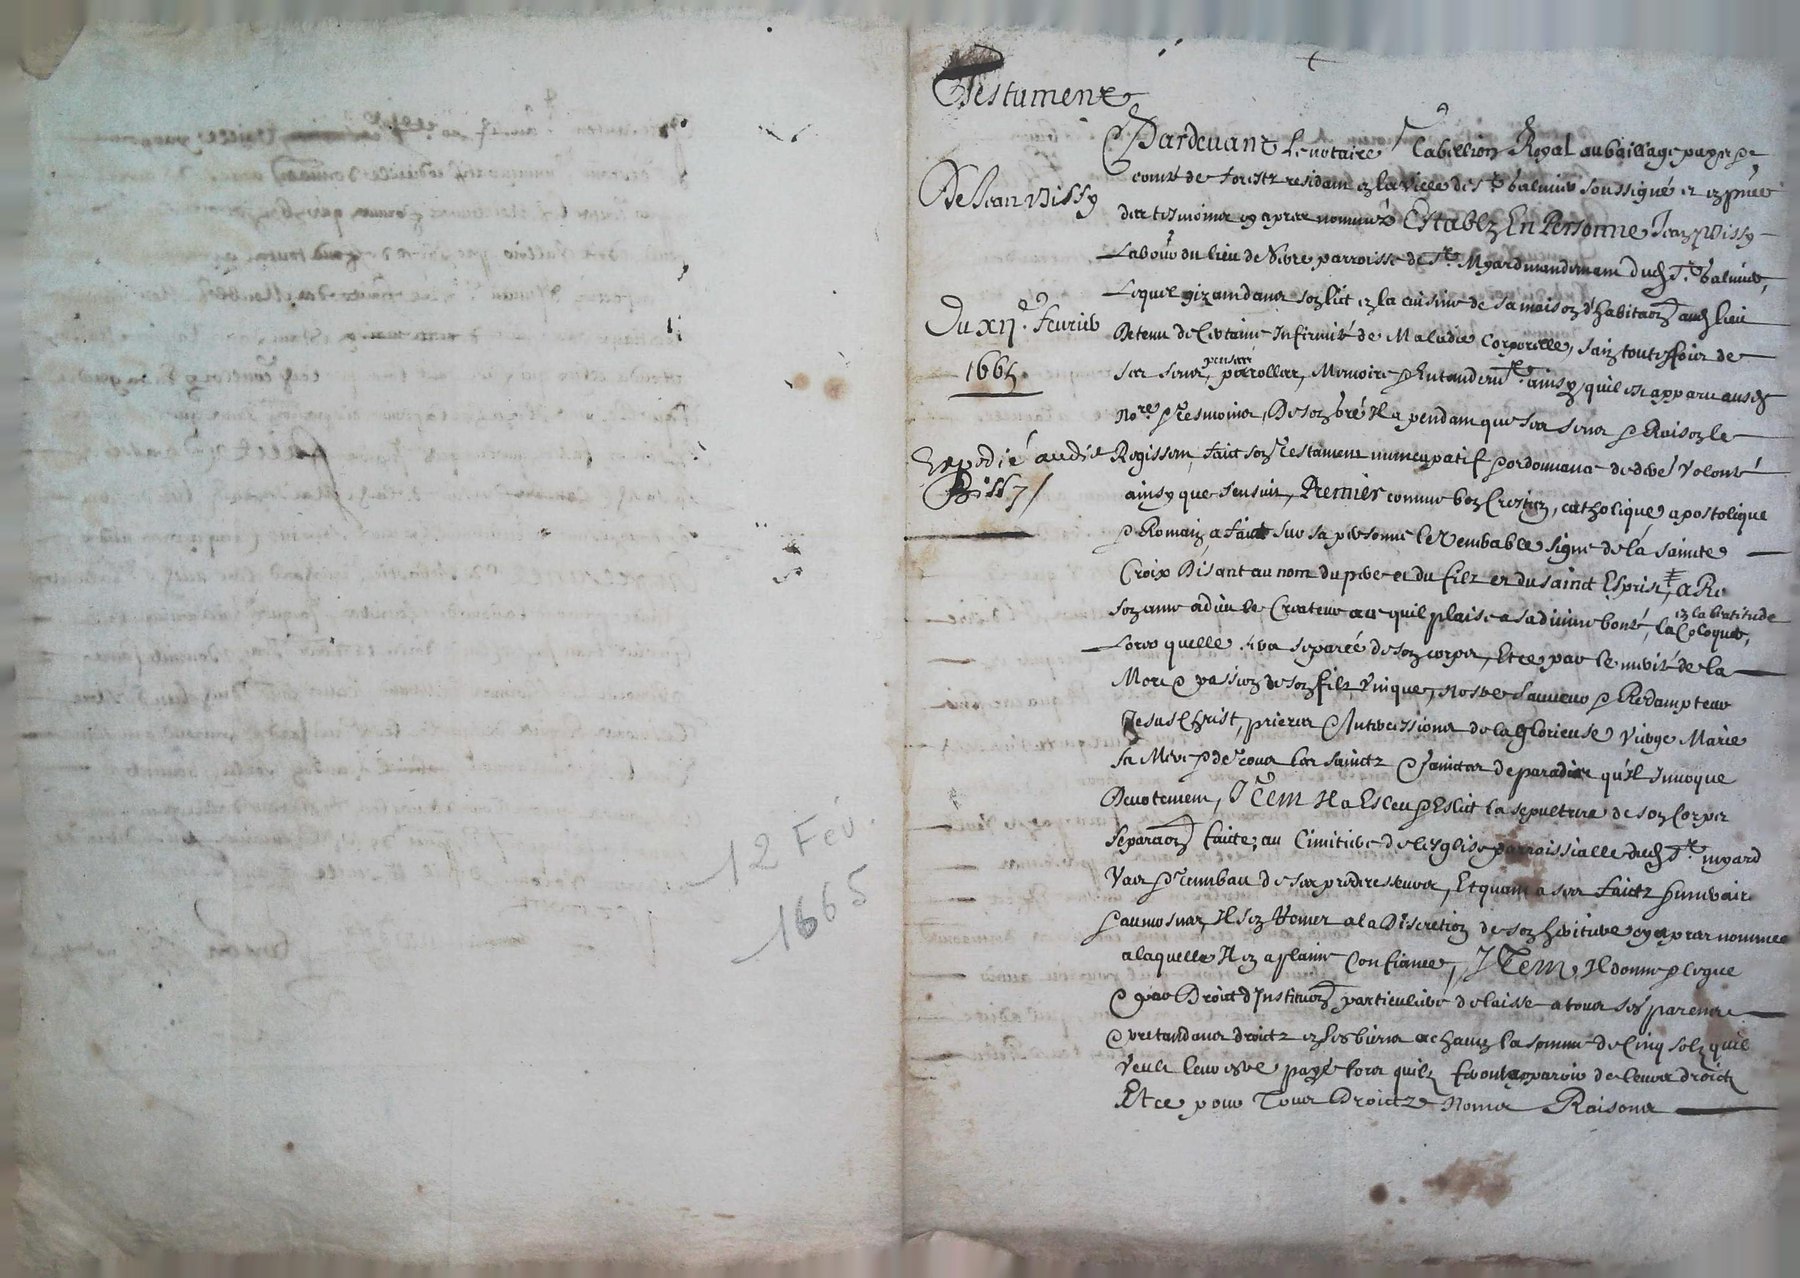 12 Fev.
1665
Testament
De Jean Dissy
Du xij.e Feurier
1665
Expedié audit
Dissy
Pardeuant Le notaire Tabellion Royal au bailliage pays &
comté de forestz residant en la ville de St balmier soussigné et en pñce
des tesmoins cy apres nommez Establi En Personne Jean Dissy
Labour du lieu de parroisse de St Myard mandement dud St balmier,
Lequel gizant dans son lict en la cuisine de sa maison d'habitaon aud lieu
Detenu de Certaine Infirmité de Maladie Corporelle, sain toutesfois de
ses sens, pensée parolles, Memoire & Entendemt ainsy qu'il est apparu ausd
nore & tesmoins, De son gré Il a pendant que ses sens & Raison le
Regissent, faict son Testament nuncupatif & ordonnance de volonté
ainsy que sensuit, Premier comme bon Crestien, catholique apostolique
& Romain a faict sur sa personne le venerable signe de la saincte
Croix Disant au nom du pere et du filz et du sainct Esprit, a
son ame a dieu le Createur a ce quil plaise a sa diuine bonté, la Coloquer, en la beatitude
Lors quelle sera separée de son corps, Et ce par le merite de la
Mort & passion de son filz vnique, nostre Sauueur & Redampteur
Jesus Christ, prieres & Intercessions de la glorieuse vierge Marie
sa Mere & de tous les sainctz & sainctes de paradis qu'il Inuoque
Deuotement, Item Il a Esleu & Eslit la sepulture de son Corps
separaon faicte, au Cimitiere de lesglise parroissialle dud St myard
& tumbau de ses predecesseurs, Et quant a ses faictz funerair
& aumosnes Il sen Remet a la Discretion de son heritiere cy apres nommée
a laquelle Il en a plaine Confiance, Item, Il donne & legue
& par Droict d'Instituon particuliere delaisse a tous ses parens
& pretendans droictz en ses biens a chascun la somme de Cinq solz quil
veult leur estre payé lors quilz feront apparoir de leurs droictz
Et ce pour Tous Droictz Noms Raisons